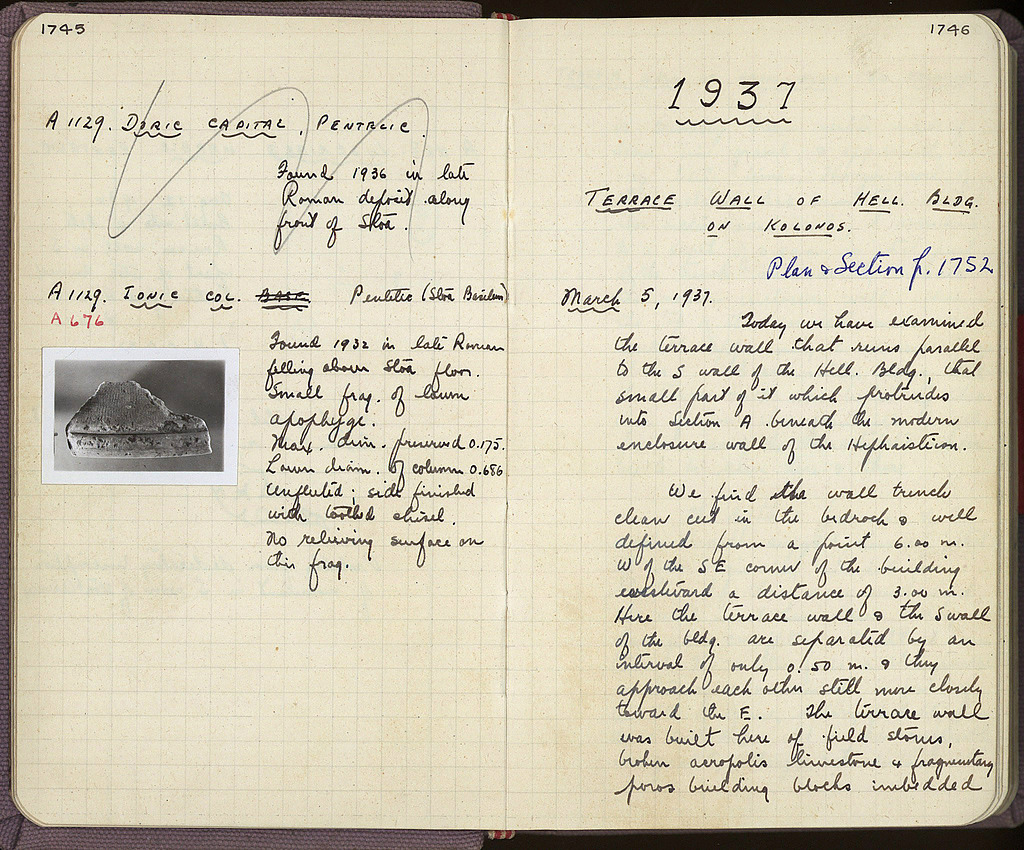 1745
A 1129. DORIC CAPITAL, PENTELIC.
Found 1936 in late
Roman deposit along
front of Stoa.
A 1129. IONIC COL. BASE Pentelic (Stoa Basileios)
A 676
Found 1932 in late Roman
filling above Stoa floor.
Small frag. of lower
apophyge.
Max. dim. preserved 0.175.
Lower diam. of column 0.686
Unfluted; side finished
with toothed chisel.
No relieving surface on
this frag.
1746
1937
TERRACE WALL OF HELL. BLDG.
ON KOLONOS.
Plan & Section p. 1752
March 5, 1937.
Today we have examined
the terrace wall that runs parallel
to the S wall of the Hell. Bldg., that
small part of it which protrudes
into Section A beneath the modern
enclosure wall of the Hephaisteion.
We find the wall trench
clean cut in the bedrock & well
defined from a point 6.00 m.
W of the SE corner of the building
eastward a distance of 3.00 m.
Here the terrace wall & the S wall
of the bldg. are separated by an
interval of only 0.50 m. & they
approach each other still more closely
toward the E. The terrace wall
was built here of field stones,
broken acropolis limestone & fragmentary
poros building blocks imbedded